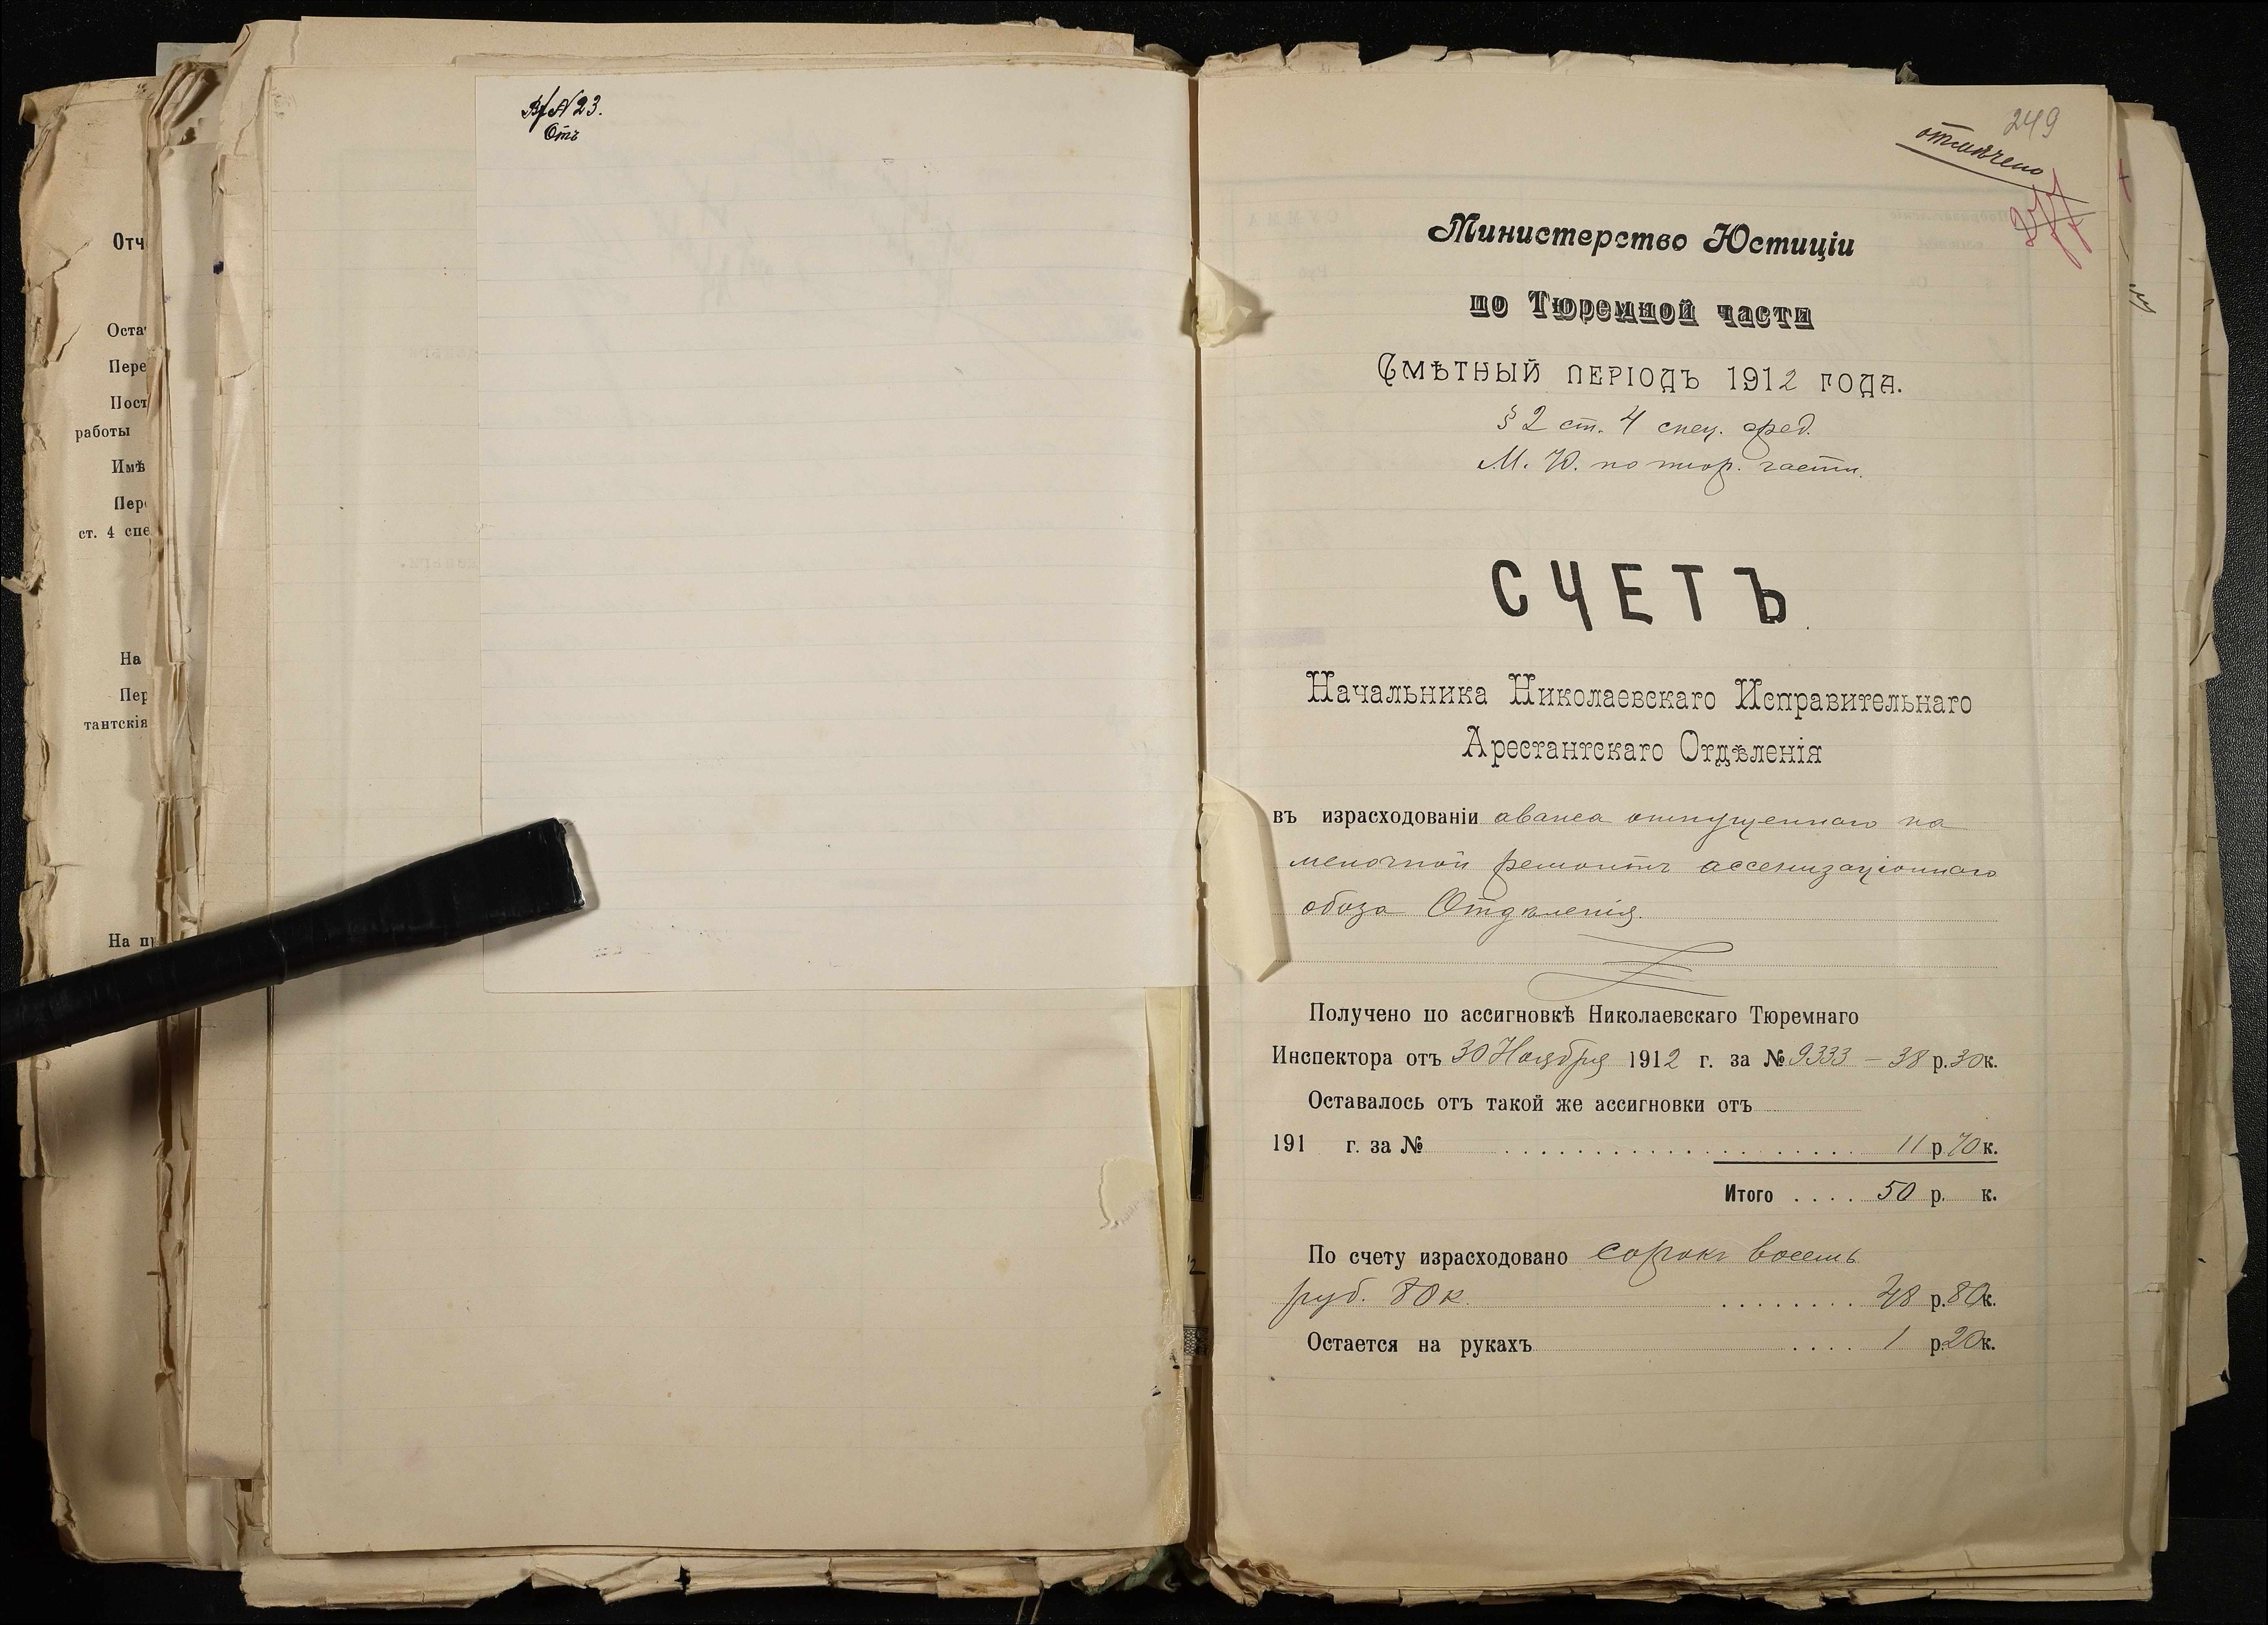 Отч
Оста
Пере
Пост
работы
Имѣ
Пер
ст. 4 спе
На
Пер
тантскія
На п
№ 23.
Отъ
249
отмѣчено
Министерство Юстиціи
по Тюремной части
Смѣтный періодъ 1912 года.
§ 2 ст. 4 спец. сред.
М. Ю. по тюр. части.
СЧЕТЪ
Начальника Николаевскаго Исправительнаго
Арестантскаго Отдѣленія
въ израсходованіи аванса отпущеннаго на
мелочной ремонтъ ассенизаціоннаго
обоза Отдѣленія.
Получено по ассигновкѣ Николаевскаго Тюремнаго
Инспектора отъ 30 Ноября 1912 г. за № 9333 – 38 р. 30 к.
Оставалось отъ такой же ассигновки отъ
191 г. за № . . . . . . . . . . . . . . . . . . . . 11 р 70 к.
Итого . . . . 50 р. к.
По счету израсходовано сорокъ восемь
руб. 80 к. . . . . . . . . 48 р. 80 к.
Остается на рукахъ . . . . 1 р 20 к.